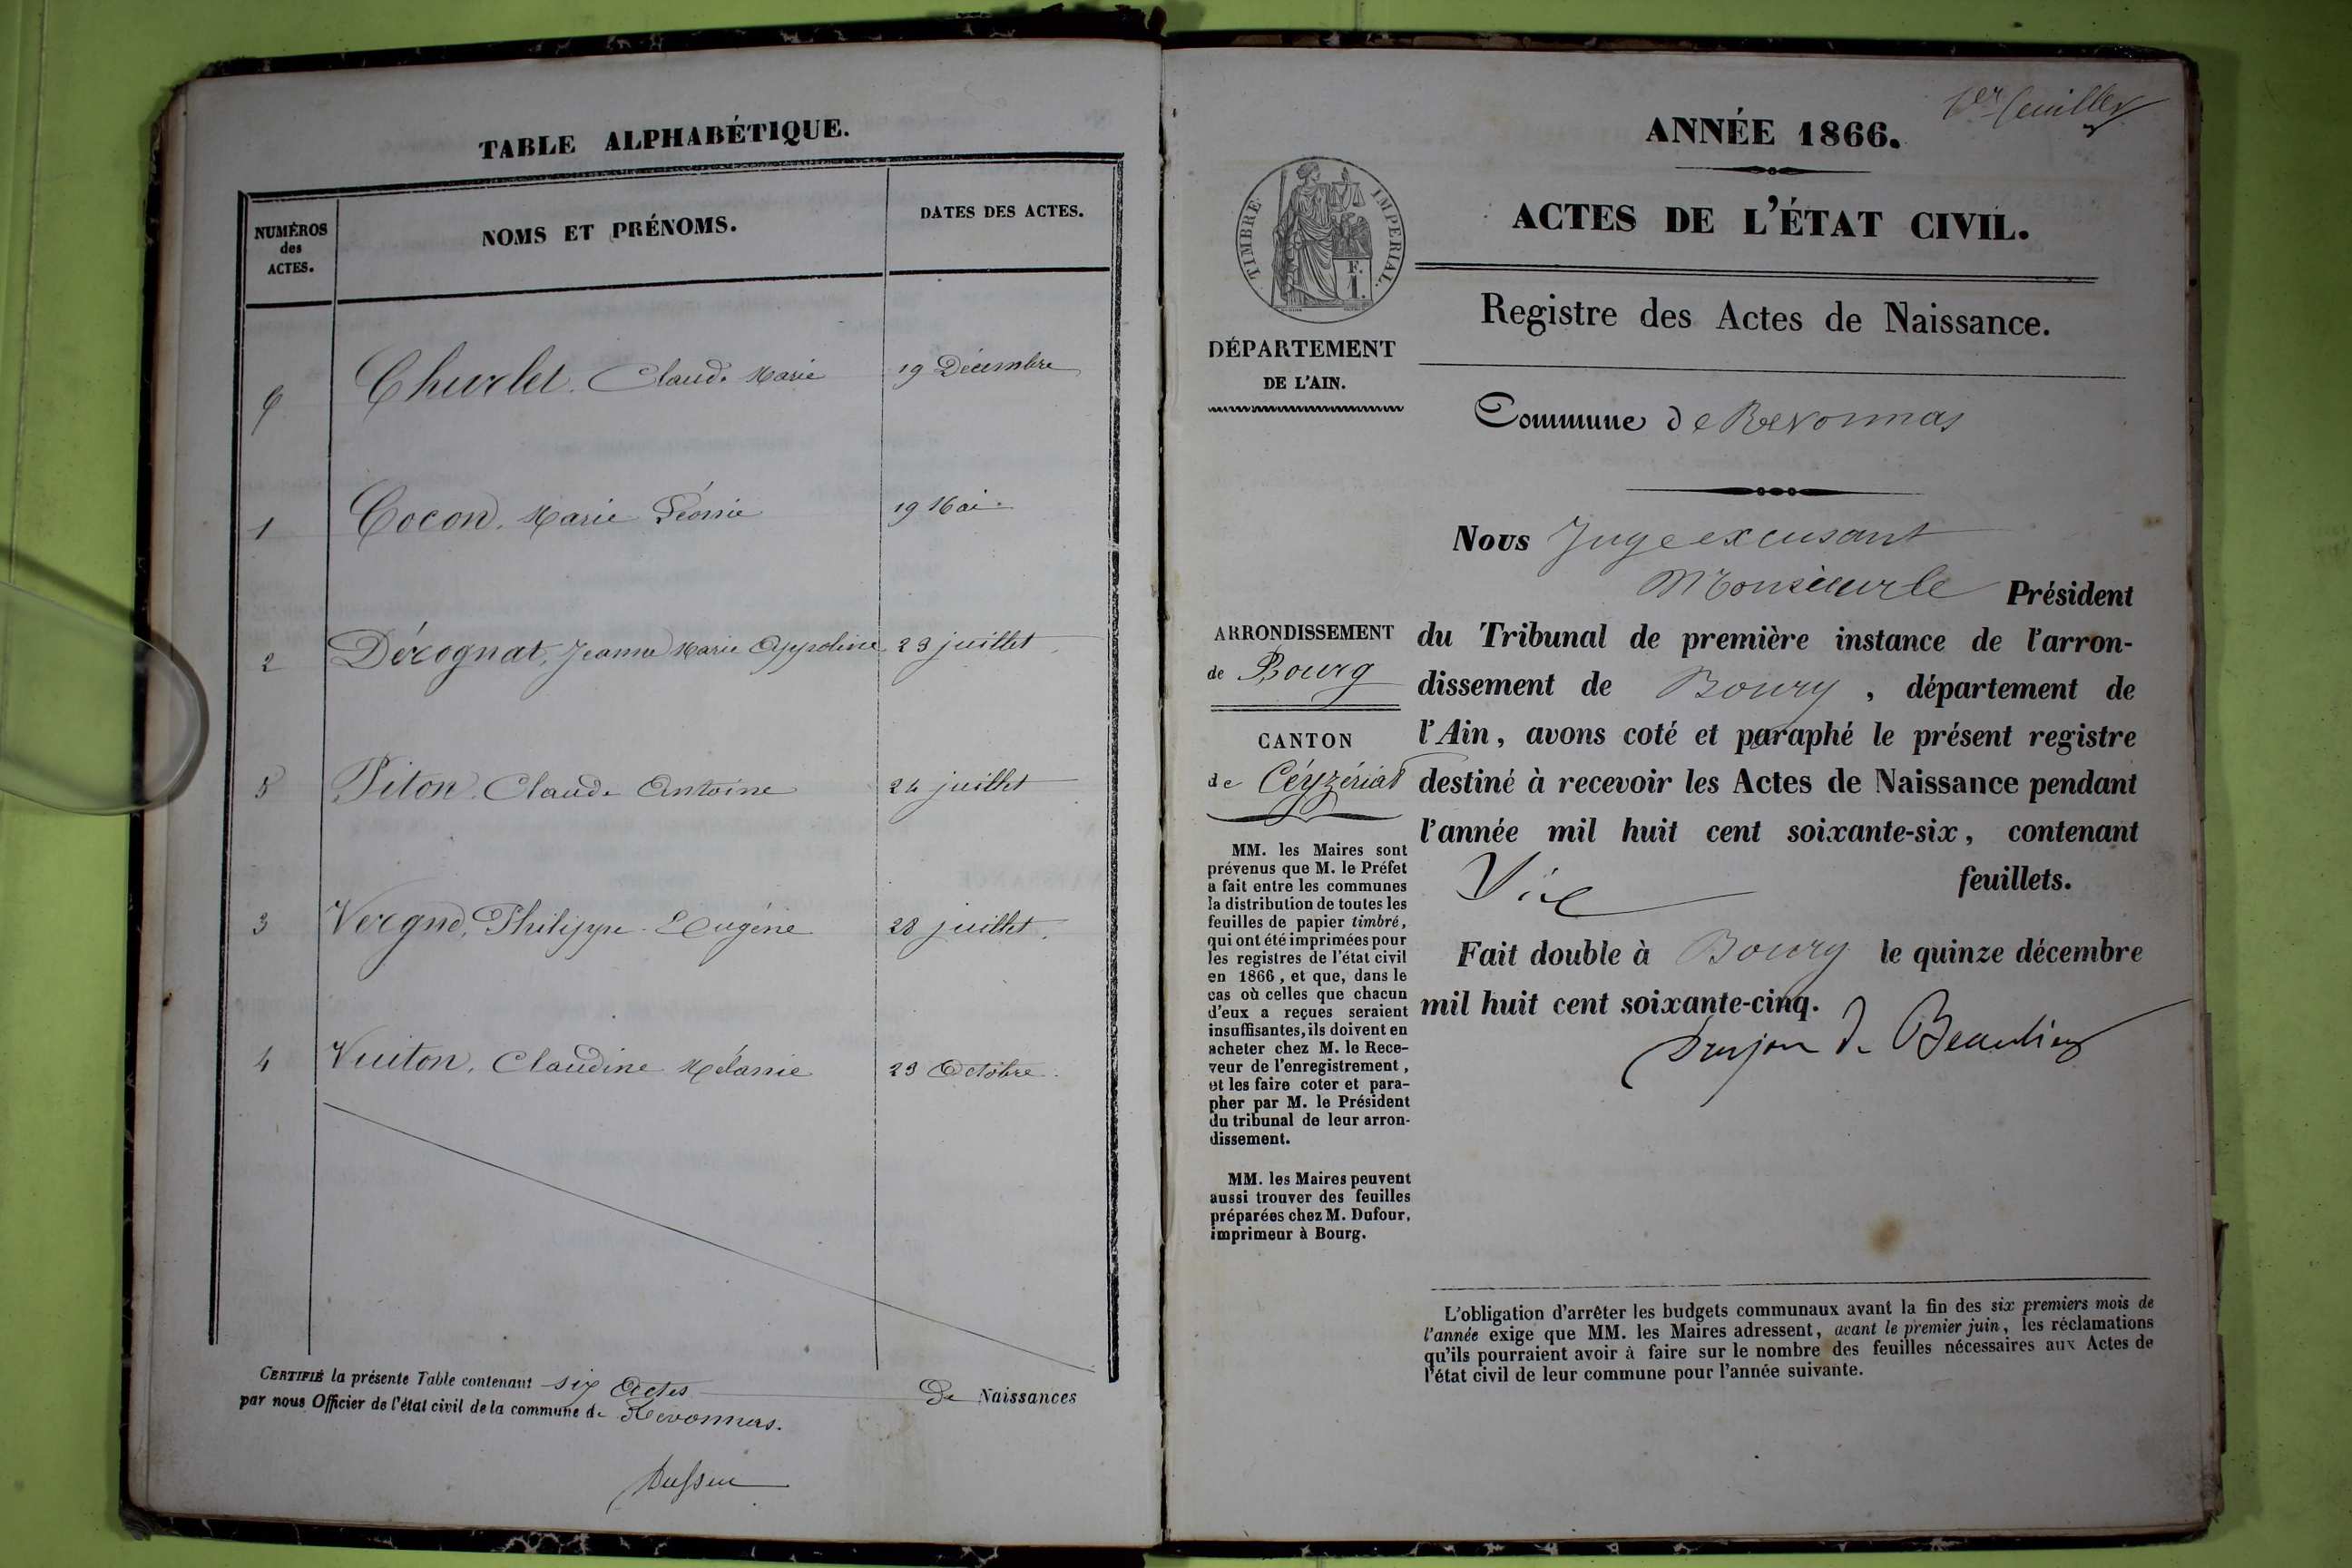 TABLE ALPHABÉTIQUE.
NUMÉROS des ACTES.
NOMS ET PRÉNOMS.
DATES DES ACTES.
Churlet. Claude Marie 19 Décembre
1 Cocon, Marie Léonie 19 Mai
2 Décognat, Jeanne Marie Appoline 23 juillet
5 Piton Claude Antoine 24 juillet
3 Vergne, Philippe Eugène 28 juillet
4 Vuiton, Claudine Mélanie 23 Octobre
CERTIFIÉ la présente Table contenant six Actes De Naissances
par nous Officier de l'état civil de la commune de Revonnas.
1er feuillet
ANNÉE 1866.
TIMBRE IMPERIAL.
F.
1.
ACTES DE L'ÉTAT CIVIL.
Registre des Actes de Naissance.
DÉPARTEMENT
DE L'AIN.
Commune de Revonnas
Nous Juge excusant
Monsieur le Président
du Tribunal de première instance de l'arron-
dissement de Bourg , département de
l'Ain, avons coté et paraphé le présent registre
destiné à recevoir les Actes de Naissance pendant
l'année mil huit cent soixante-six, contenant
feuillets.
Fait double à Bourg le quinze décembre
mil huit cent soixante-cinq.
de Beaulieu
ARRONDISSEMENT
de Bourg
CANTON
de Céyzériat
MM. les Maires sont
prévenus que M. le Préfet
a fait entre les communes
la distribution de toutes les
feuilles de papier timbré,
qui ont été imprimées pour
les registres de l'état civil
en 1866, et que, dans le
cas où celles que chacun
d'eux a reçues seraient
insuffisantes, ils doivent en
acheter chez M. le Rece-
veur de l'enregistrement,
et les faire coter et para-
pher par M. le Président
du tribunal de leur arron-
dissement.
MM. les Maires peuvent
aussi trouver des feuilles
préparées chez M. Dufour,
imprimeur à Bourg.
L'obligation d'arrêter les budgets communaux avant la fin des six premiers mois de
l'année exige que MM. les Maires adressent, avant le premier juin, les réclamations
qu'ils pourraient avoir à faire sur le nombre des feuilles nécessaires aux Actes de
l'état civil de leur commune pour l'année suivante.